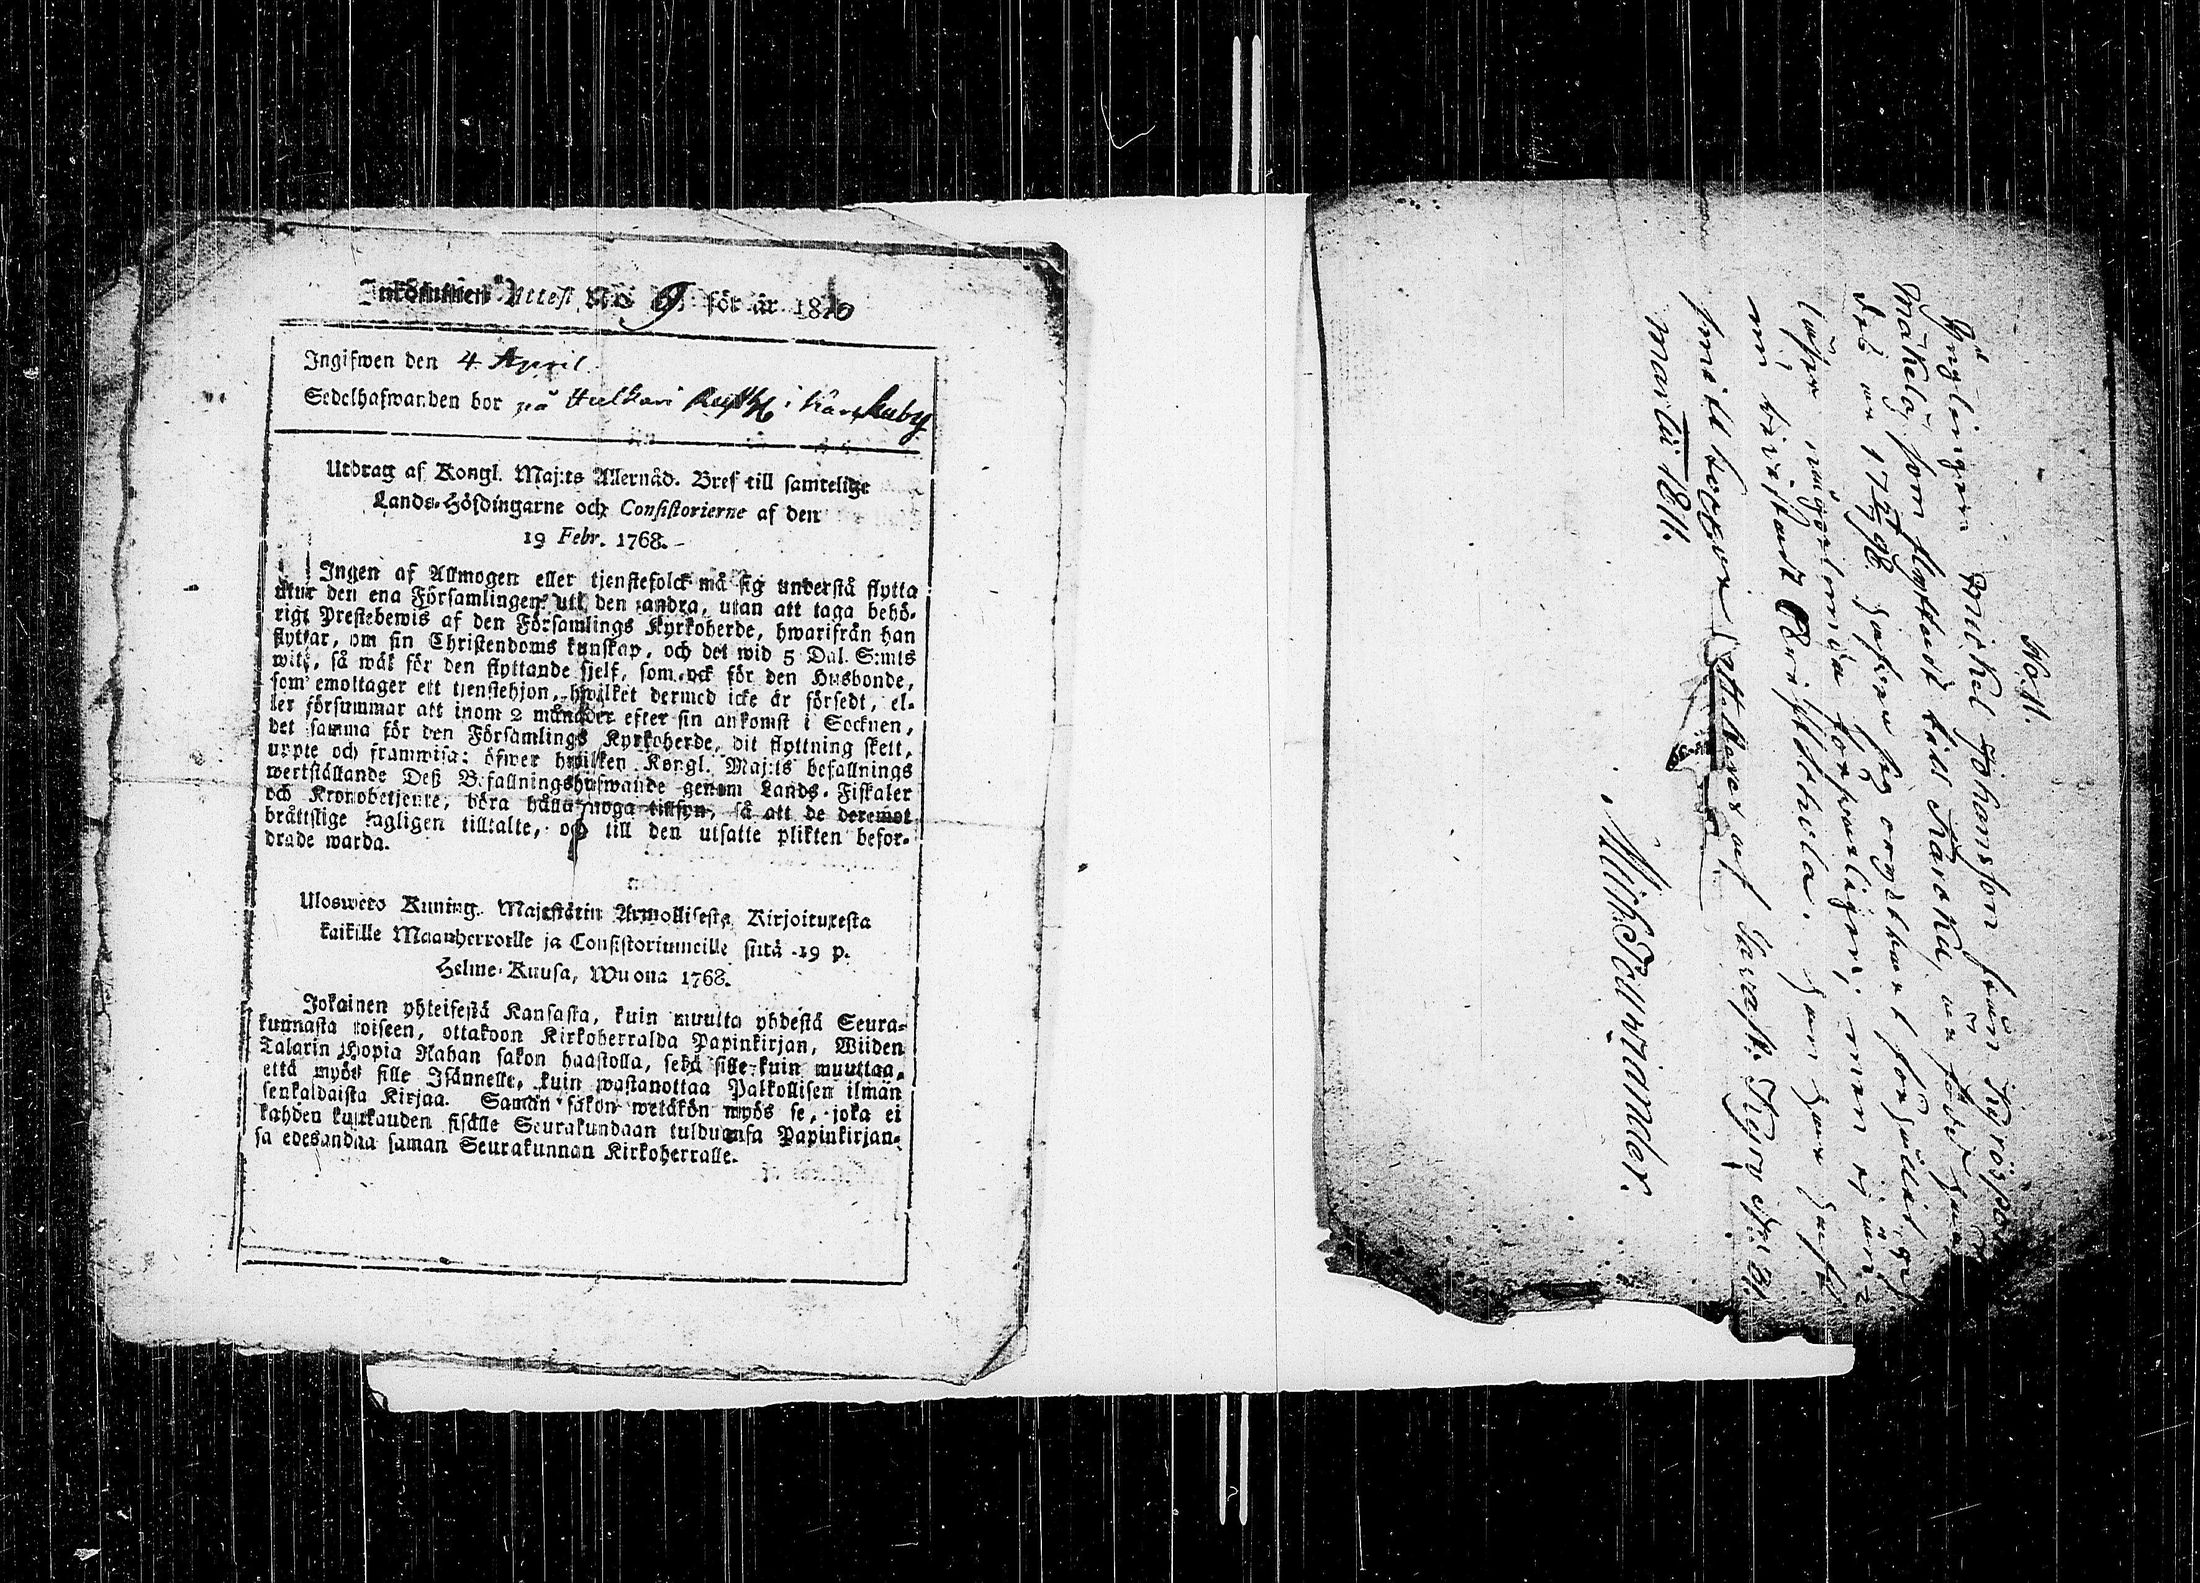 Inkommen Attest No 9. för år 1810
Ingifwen den 4 April.
Sedelhafwanden bor på Hulkari Rusth i Karskuby
Utdrag af Kongl. Maj:ts Allernåd. Bref till samtelige
Lands-Höfdingarne och Consistorierne af den
19 Febr. 1768.
Ingen af Allmogen eller tjenstefolck må sig understå flytta
utur den ena Församlingen till den andra, utan att taga behö-
rigt Prestebewis af den Församlings Kyrkoherde, hwarifrån han
flyttar, om sin Christendoms kunskap, och det wid 5 Dal. S:mts
wite, så wäl för den flyttande sjelf, som ock för den Husbonde,
som emottager ett tjenstehjon, hwilket dermed icke är försedt, el-
ler försummar att inom 2 månader efter sin ankomst i Socknen,
det samma för den Församlings Kyrkoherde, dit flyttning skett,
uppte och framwisa: öfwer hwilken Kongl. Maj:ts befallnings
werkställande Deß Befallningshafwande genom Lands-Fiskaler
och Kronobetjente, böra hålla noga tillsyn, så att de deremot
bråttslige lagligen tilltalte, och till den utsatte plikten befor-
drade warda.
Uloswero Kuning. Majestätin Armollisesta Kirjoituxesta
kaikille Maanherroille ja Consistoriumeille siitä 19 p.
Helme-Kuusa, Wuona 1768.
Jokainen yhteisestä Kansasta, kuin muutta yhdestä Seura-
kunnasta toiseen, ottakoon Kirkoherralda Papinkirjan, Wiiden
Talarin Hopia Rahan sakon haastolla, sekä sille kuin muuttaa,
että myös sille Isännelle, kuin wastanottaa Palkollisen ilmän
senkaldaista Kirjaa. Saman sakon wetäkön myös se, joka ei
kahden kuukauden sisälle Seurakundaan tulduansa Papinkirjan-
sa edesandaa saman Seurakunnan Kirkoherralle.
No. 11.
Ynglingen Michel Johansson från Kyröspo
Mäkelä, som flyttadt till Karckku, är född
det år 1798 hafver sig
läser någorlunda försvarligen; men är
ni bivistadt Christi. han har haft
smittkoppor attesterar af Tavast: Kyro d: 21
martii 1811.
Mich: Tavvzander.